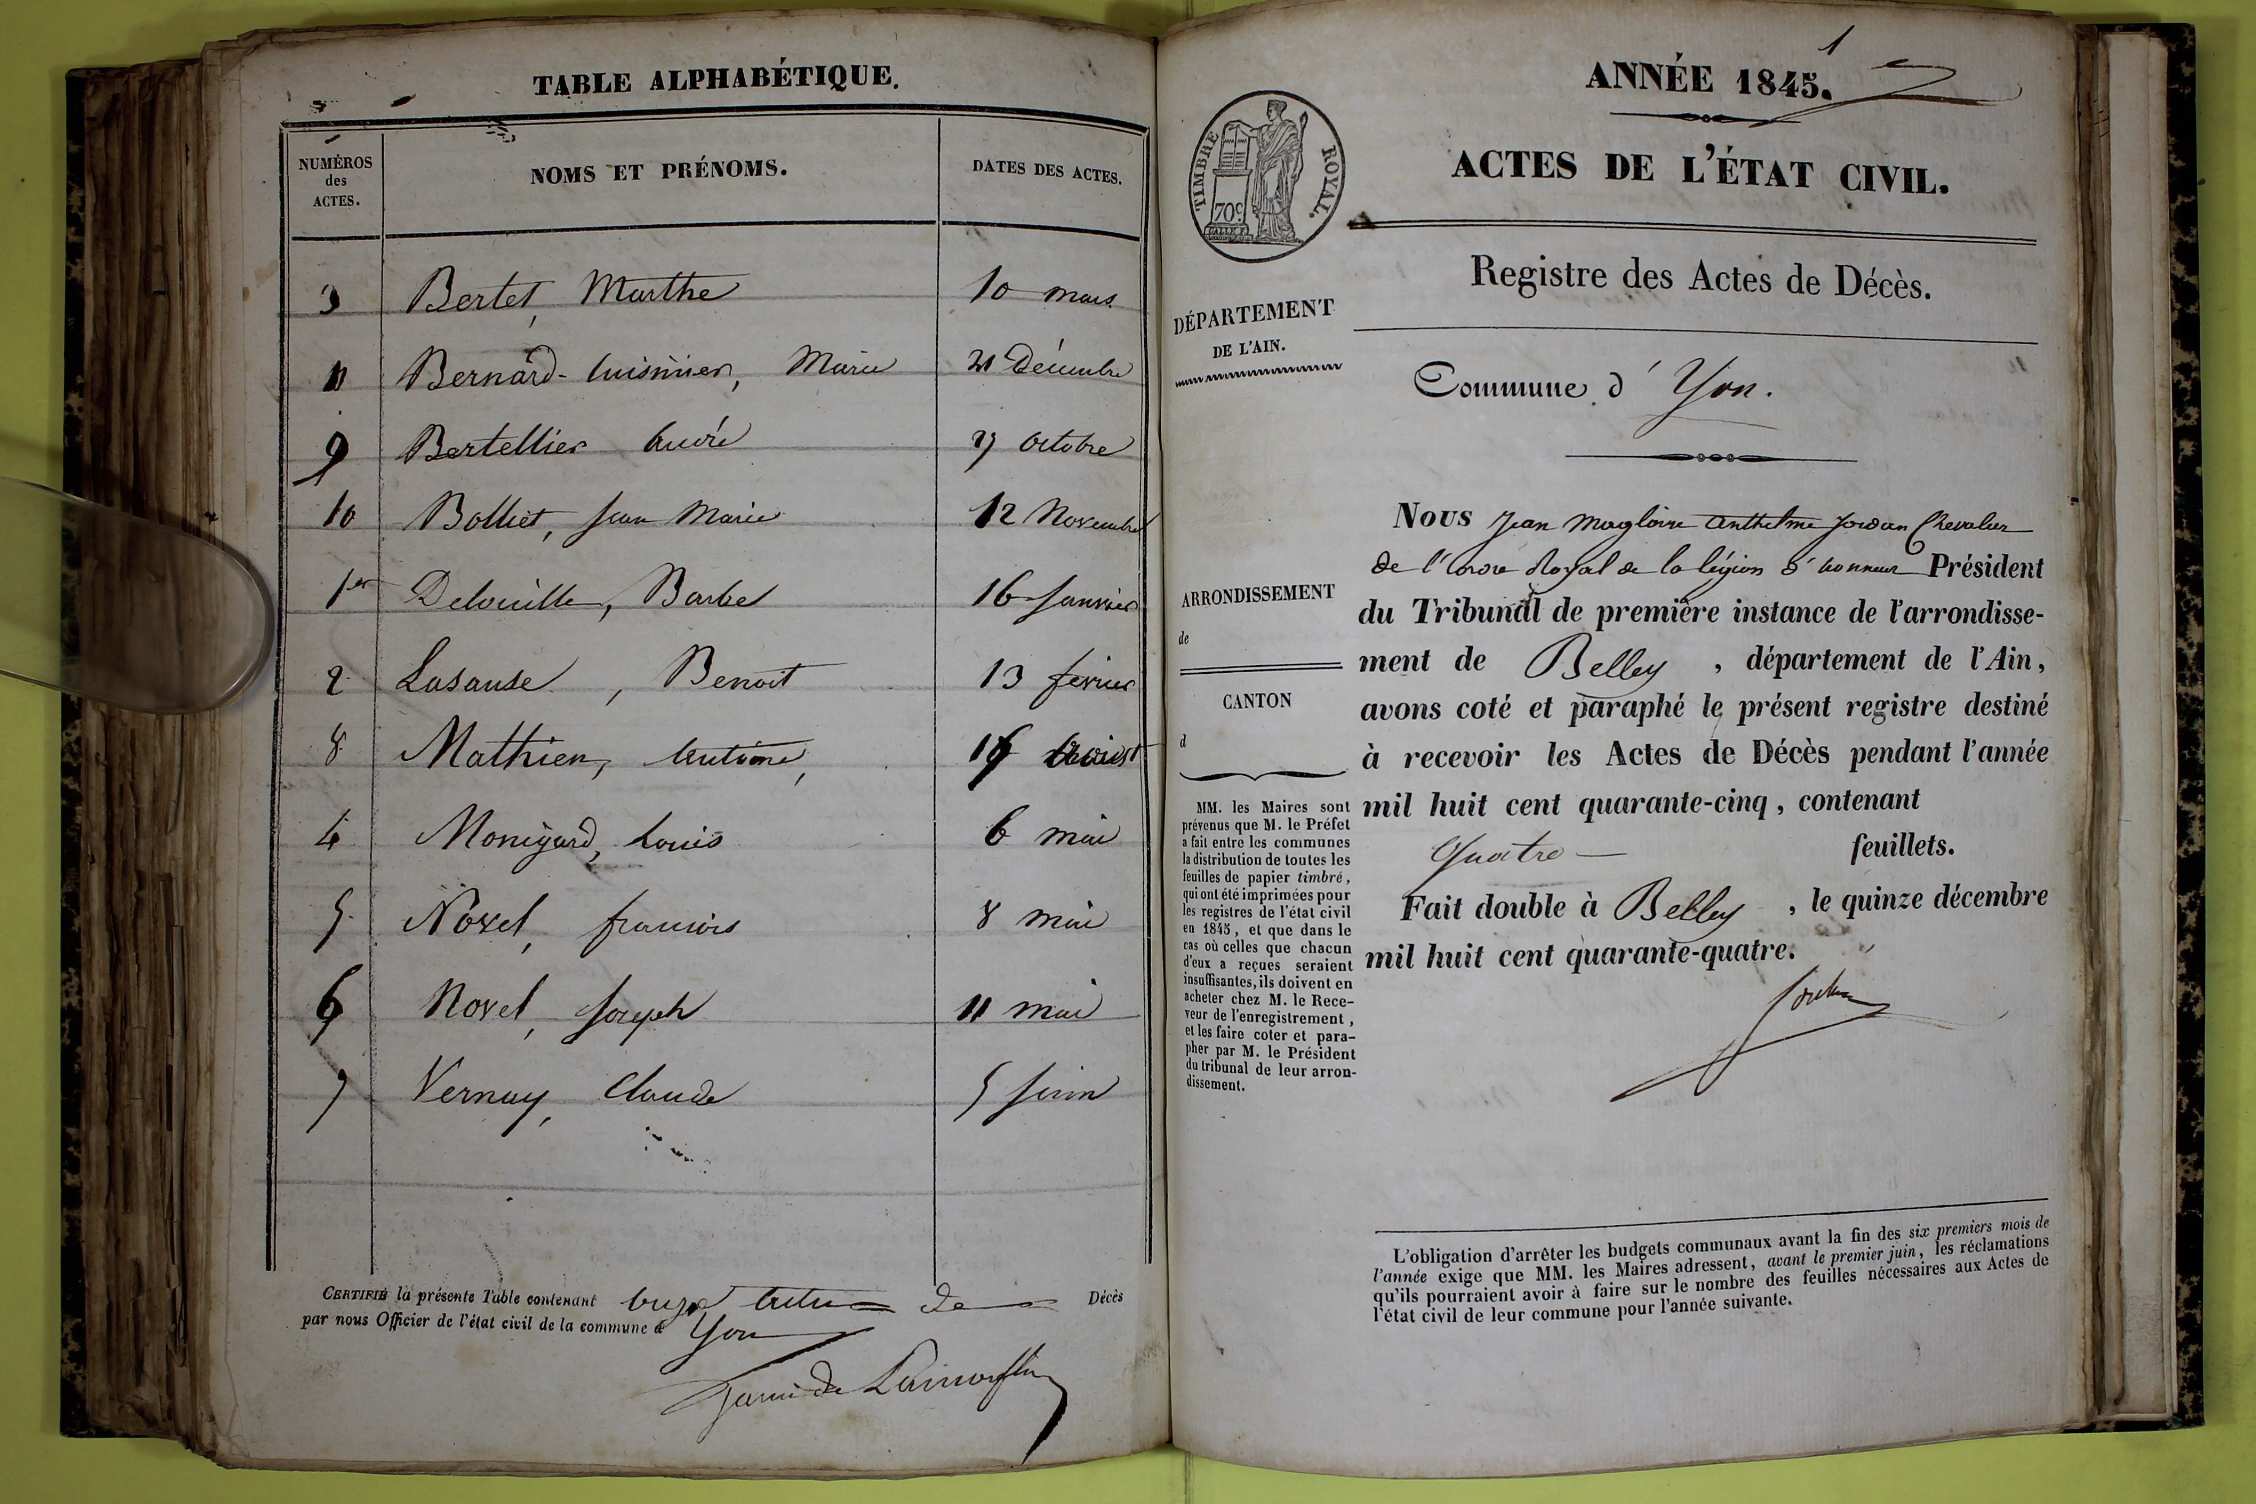 TABLE ALPHABÉTIQUE.
NUMÉROS
des
ACTES.
NOMS ET PRÉNOMS.
DATES DES ACTES.
3 Bertet, Marthe 10 mars
11 Bernard-Cuisinier, Marie 21 Décembre
9 Bertellier André 27 octobre
10 Bolliet, Jean Marie 12 Novembre
1er Barbe 16 Janvier
2 Lasausse, Benoit 13 fevrier
8 Mathieu, Antoine, Aoust
4 Louis 6 mai
5 Novel, francois 8 mai
6 Novel, Joseph 11 mai
7 Vernay, Claude 5 Juin
CERTIFIÉ la présente Table contenant onze actes de Décès
par nous Officier de l'état civil de la commune d Yon
1
ANNÉE 1845.
ACTES DE L'ÉTAT CIVIL.
TIMBRE ROYAL.
70c
Registre des Actes de Décès.
DÉPARTEMENT
DE L'AIN.
Commune d' Yon.
Nous Jean Magloire Anthelme Jordan Chevalier
de l'ordre Royal de la légion d'honneur Président
du Tribunal de première instance de l'arrondisse-
ment de Belley, département de l'Ain,
avons coté et paraphé le présent registre destiné
à recevoir les Actes de Décès pendant l'année
mil huit cent quarante-cinq, contenant
quatre feuillets.
Fait double à Belley, le quinze décembre
mil huit cent quarante-quatre.
Jordan
ARRONDISSEMENT
de
CANTON
d
MM. les Maires sont
prévenus que M. le Préfet
a fait entre les communes
la distribution de toutes les
feuilles de papier timbré,
qui ont été imprimées pour
les registres de l'état civil
en 1845, et que dans le
cas où celles que chacun
d'eux a reçues seraient
insuffisantes, ils doivent en
acheter chez M. le Rece-
veur de l'enregistrement,
et les faire coter et para-
pher par M. le Président
du tribunal de leur arron-
dissement.
L'obligation d'arrêter les budgets communaux avant la fin des six premiers mois de
l'année exige que MM. les Maires adressent, avant le premier juin, les réclamations
qu'ils pourraient avoir à faire sur le nombre des feuilles nécessaires aux Actes de
l'état civil de leur commune pour l'année suivante.